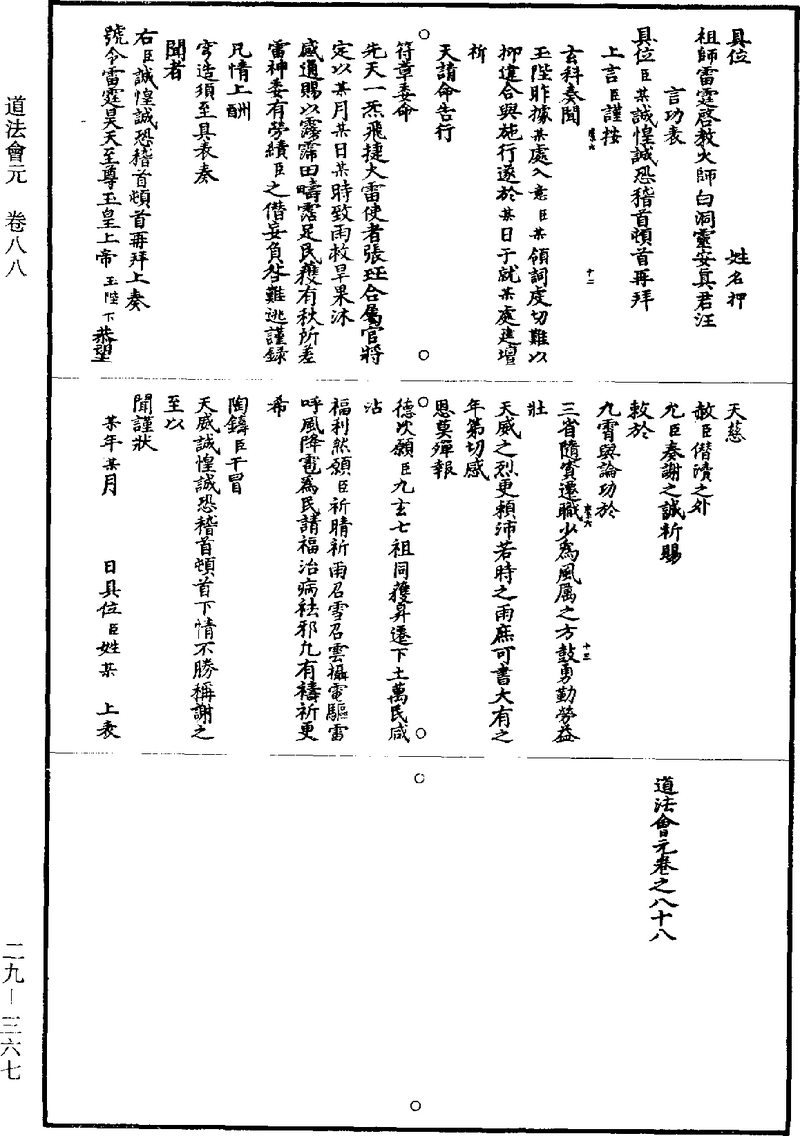 具位　　　　　　　　　　姓名押
祖師雷霆啓教火師白洞靈安真君汪
言功表
具位臣某誠惶誠恐稽首頓首再拜
上言臣謹按
玄科奏聞
玉陛昨據某處入意臣某領詞虔切難以
抑違合與施行遂於某日于就某處建壇
祈
天請命告行
符章委命
先天一炁飛捷大雷使者張玨合屬官將
定以某月某日某時致雨救旱果沐
感通賜以霶霈田疇霑足民獲有秋所差
雷神委有勞績臣之僭妄負咎難逃謹録
凡情上酬
穹造須至具表奏
聞者
右臣誠惶誠恐稽首頓首再拜上奏
號令雷霆昊天至尊玉皇上帝玉陛下恭望
十二
天慈
赦臣僭瀆之外
允臣奏謝之誠祈賜
敕於
九霄與論功於
三省隨賚遷職少爲風厲之方鼓勇勤勞益
壯
天威之烈更賴沛若時之雨庶可書大有之
年第切感
恩莫殫報
德次願臣九玄七祖同獲昇遷下土萬民咸
沾
福利然願臣祈晴祈雨召雪召雲攝電驅雷
呼風降雹爲民請福治病祛邪凡有禱祈更
希
陶鑄臣干冒
天威誠惶誠恐稽首頓首下情不勝稱謝之
至以
聞謹狀
某年某月　　日具位臣姓某　上表
十三
道法會元卷之八十八
道法會元　卷八八
二九－三六七